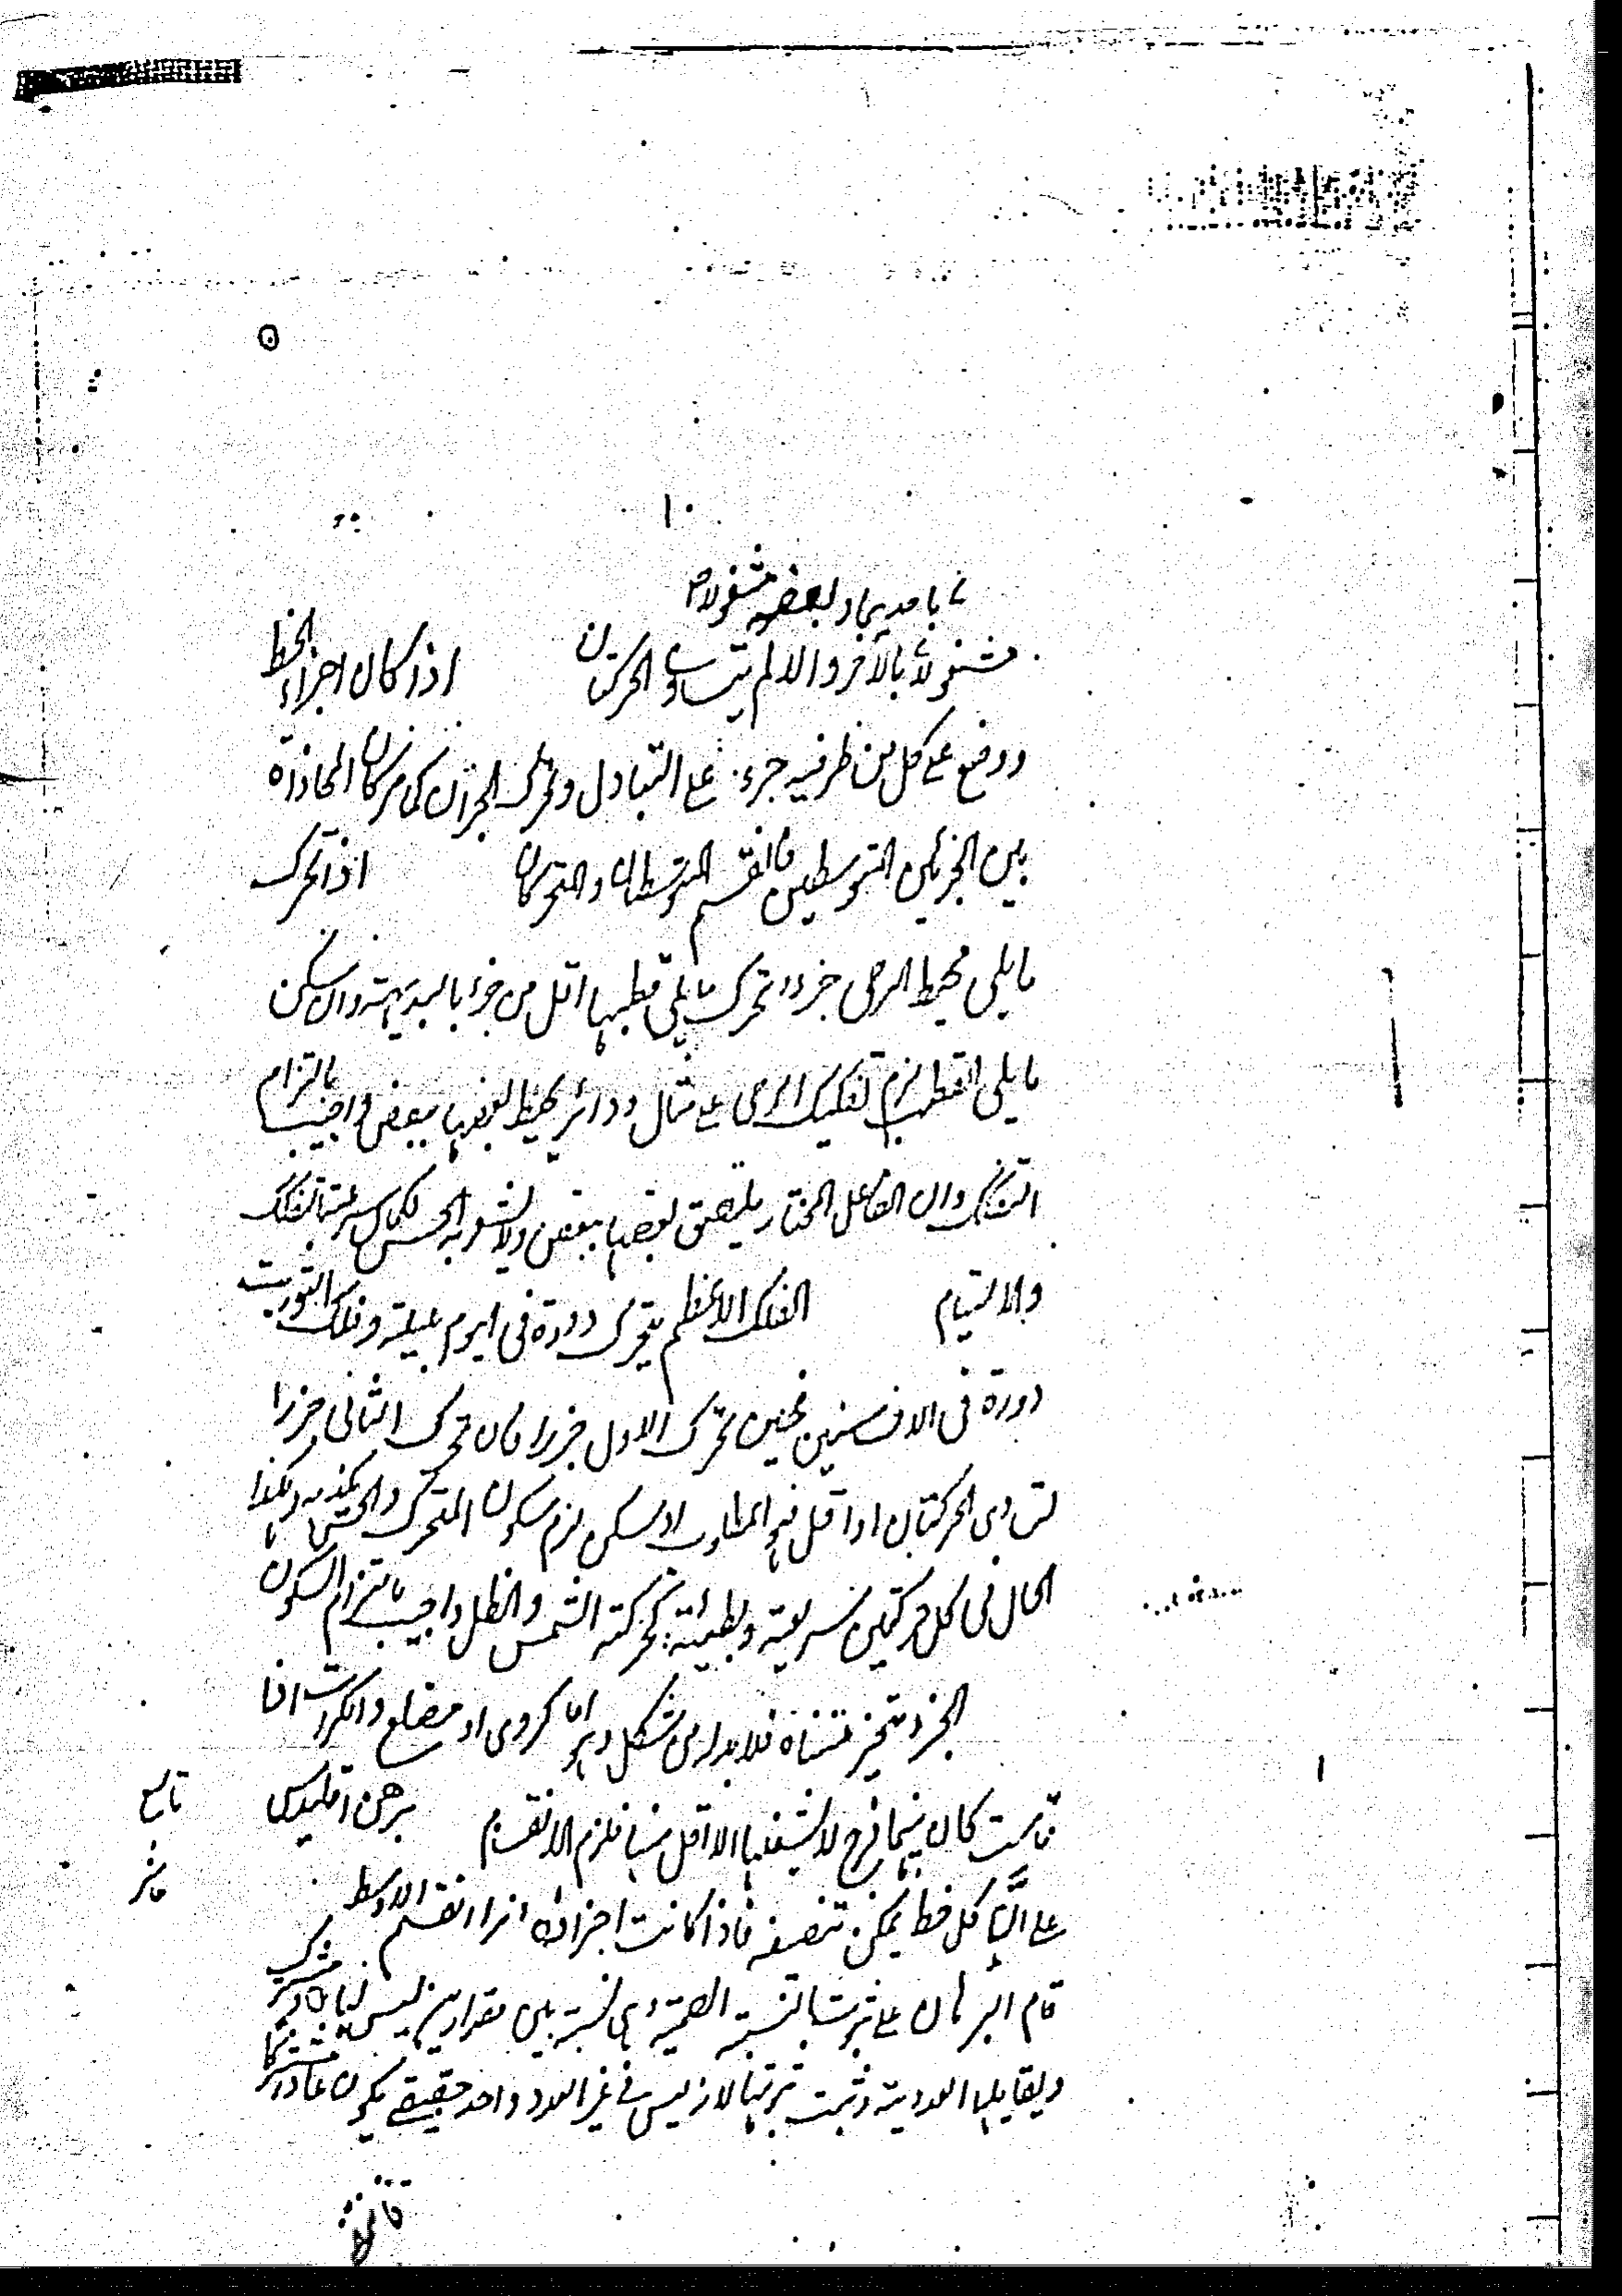 ١٠
باحديهما وبعضه مشغولا
مشغولا بالآخر والا لم يتساوى الحركتان اذ كان اجزاء الخط
ووضع على كل من طرفيه جزء على التبادل وتحرك الجزآن المحاذاة
بين الجزئين المتوسطين فانقسم المتوسطان والمتحركان اذا تحرك
ما يلى محيط الرحى جزءا تحرك ما يلى قطبها اقل من جزء بالبديهة وان سكن
ما يلى القطب لزم تفكيك الرحى على مثال دوائر يحيط بعضها ببعض واجيب بالتزام
التفكك وان الفاعل المختار يلصق بعضها ببعض ولا يشعر به الحس لكمال سرعة التفكك
والالتيام الفلك الاعظم يتحرك دورة فى اليوم بليلته وفلك الثوابت
دورة فى الاف سنين فحين تحرك الاول جزءا فان تحرك الثانى جزءا
تساوى الحركتان او اقل فهو المطلوب او سكن لزم سكون المتحرك والحس يكذبه وهكذا
الحال فى كل حركتين سريعة وبطيئة كحركة الشمس والظل واجيب بالتزام السكون
الجزء متحيز متناه فلا بد له من شكل وهو اما كروى او مضلع والكرات اذا
تماست كان بينها فرج لا يشغلها الا اقل منها فلزم الانقسام برهن اقليدس
على ان كل خط يمكن تنصيفه فاذا كانت اجزاؤه افرادا انقسم الاوسط
قام البرهان على ثبوت النسبة الصمية وهى نسبة بين مقدارين ليس لهما عاد مشترك
ويقابلها العددية وثبت ثبوتها لانه ليس فى غير العدد واحد حقيقى يكون عادا مشتركا
تاسع
عاشر